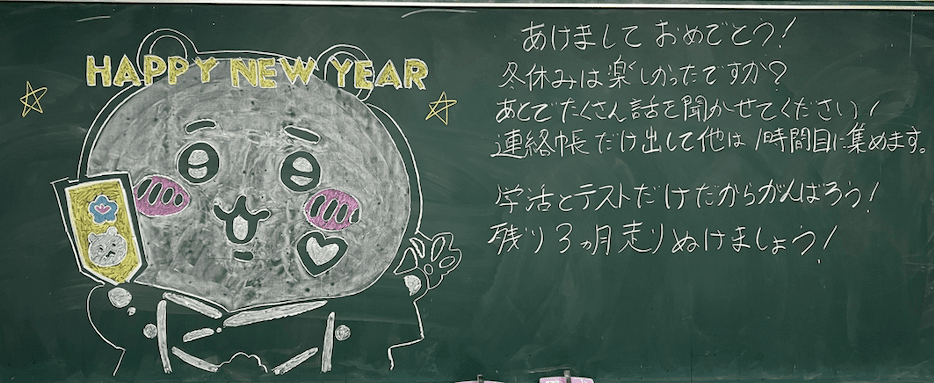 HAPPY NEW YEAR
あけまして おめでとう!
冬休みは楽しかったですか?
あとでたくさん話を聞かせてください!
連絡帳だけ出して他は1時間目に集めます。
学活とテストだけだからがんばろう!
残り3ヵ月走りぬけましょう!